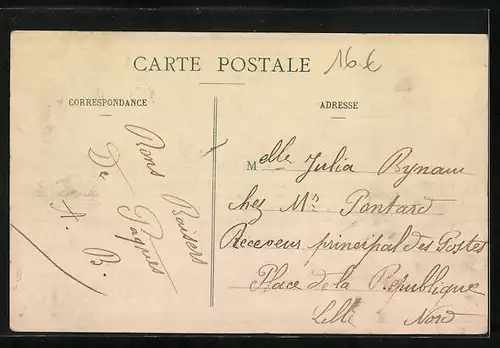 CARTE POSTALE
16 €
CORRESPONDANCE
ADRESSE
Bons Baisers
De Paques
A. B.
Melle Julia Bynau
chez Mr Pontard
Receveur principal des Postes
Place de la République
Lille Nord